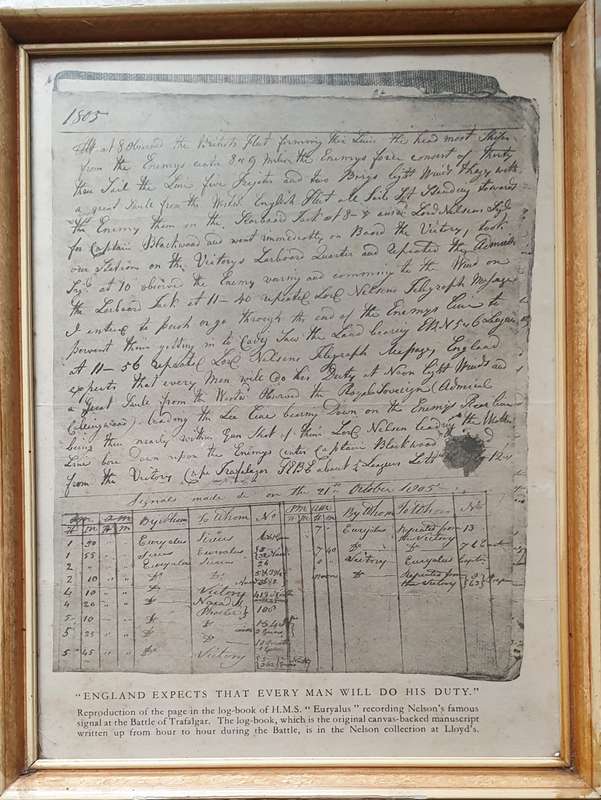 1805
at 8 observed the British fleet forming their Lines the head most Ships
from the Enemys centre 8 or 9 Miles the Enemys force consist of thirty
three Sail the Line five Frigates and two Brigs light Winds & Hazy with
a great Swele from the Westwd English fleet all Sails Set Standing towards
the Enemy them on the Starboard tack at 8-
for Captain Blackwood and went immediately on Board the Victory, took
our Station on the Victorys Larboard Quarter and repeated the Admirals
Sigls at 10 observed the Enemy waring and comming to the Wind on
the Larboard tack at 11-40 repeated Lord Nelsons Telegraph Message
I intend to push or go through the end of the Enemys line to
pervent them getting in to Cadiz Saw the Land bearing EBN 5 or 6 Leagues
At 11-56 repeated Lord Nelsons Telegraph Message, England
expects that every Man will do his Duty at Noon light Winds and
a great Swele from the Westwd Observed the Royal Sovereign (Admiral
Collingwood) leading the Lee Line bearing Down on the Enemys Rear line
being then nearly within Gun Shot of them Lord Nelson leading the Weather
Line bore down upon the Enemys center Captain Blackwood
from the Victory Cape Trafalgar SEBE about 5 Leagues
Signals made on the 21st October 1805
By Whom To Whom No By Whom To Whom No
1 20 Euryalus Sirius 7 Euryalus Repeated from the Victory 13
1 55 Sirius Euryalus 7 40 do do
2 Euryalus Sirius 26 8 Victory Euryalus
2 10 do do noon do Repeated from the Victory 63
4 10 do Victory
4 20 do Naiad &
5-10 do Phoebe 108
5 25 do do
5-45 do Victory
"ENGLAND EXPECTS THAT EVERY MAN WILL DO HIS DUTY."
Reproduction of the page in the log-book of H.M.S. "Euryalus" recording Nelson's famous
signal at the Battle of Trafalgar. The log-book, which is the original canvas-backed manuscript
written up from hour to hour during the Battle, is in the Nelson collection at Lloyd's.